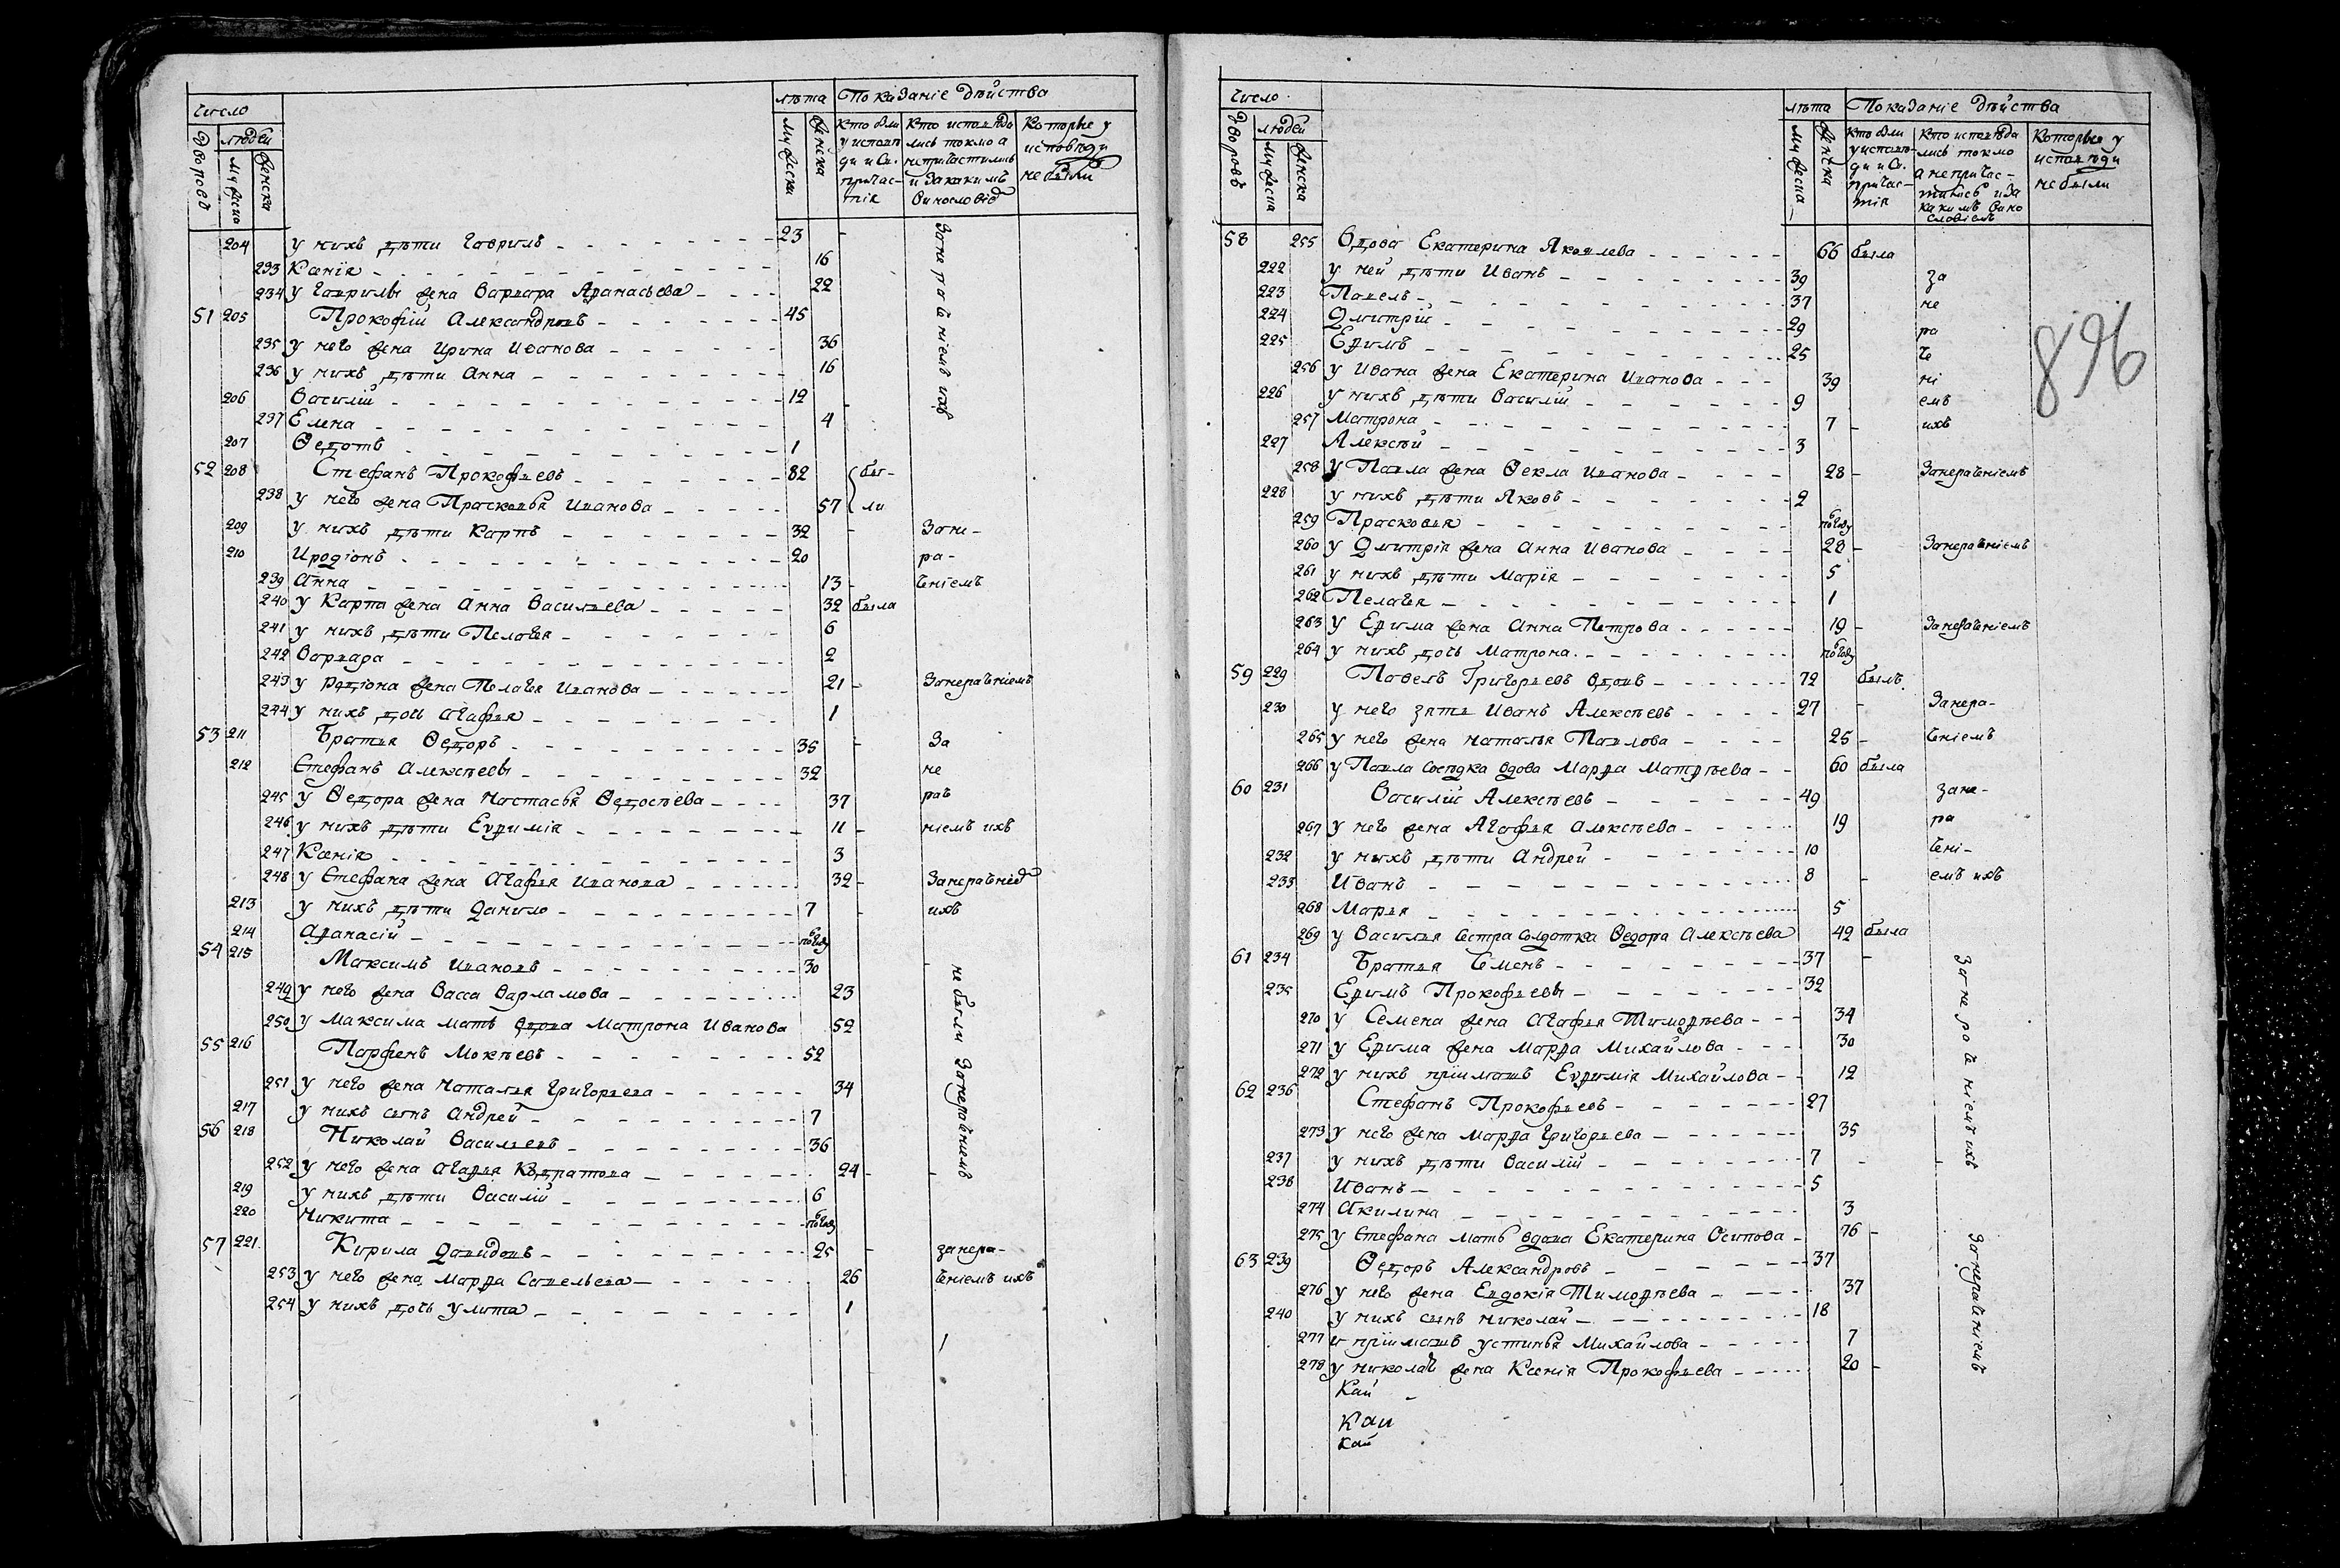 Число
Дворовъ
людей
мужеска
женска
лѣта
мужеска
женска
Показаніе дѣйства
Кто были у исповѣди и Св. причастія
Кто исповѣдались токмо а непричастились и закакимъ винословіе
Которые у исповѣди небыли
204 у нихъ дѣти Гаврилъ 23
233 Ксенія 16
234 у Гаврилы жена Варвара Афанасьева 22
занерачніемъ ихъ
51 205 Прокофій Александровъ 45
235 у него жена Ирина Иванова 36
236 у нихъ дѣти Анна 16
206 Василій 12
237 Елена 4
207 Ѳедотъ 1
52 208 Стефанъ Прокофьевъ 82 бы-
238 у него жена Прасковья Иванова 57 ли
209 у нихъ дѣти Карпъ 32 Зане-
210 Иродіонъ 20 ра-
239 Анна 13 чніемъ
240 у Карпа жена Анна Васильева 32 была
241 у нихъ дѣти Пелагея 6
242 Варвара 2
243 у Родіона жена Пелагея Иванова 21 Занерачніемъ
244 у нихъ дочь Агафья 1
53 211 Братья Ѳедоръ 35 За
212 Стефанъ Алексѣевы 32 не
245 у Ѳедора жена Настасья Ѳедосѣева 37 рач
246 у нихъ дѣти Евфимія 11 ніемъ ихъ
247 Ксенія 3
248 у Стефана жена Агафья Иванова 32 Занерачніе
213 у нихъ дѣти Данило 7 ихъ
214 Афанасій полгоду
54 215 Максимъ Ивановъ 30
небыли Занерачніемъ
249 у него жена Васса Варламова 23
250 у Максима мать вдова Матрона Иванова 52
55 216 Парфенъ Мокѣевъ 52
251 у него жена Наталья Григорьева 34
217 у нихъ сынъ Андрей 7
56 218 Николай Васильевъ 36
252 у него жена Агафья Кодратова 24
219 у нихъ дѣти Василій 6
220 Никита полгоду
57 221 Кирила Давидовъ 25 занера-
253 у него жена Марфа Савельева 26 чніемъ ихъ
254 у нихъ дочь Улита 1
Число
Дворовъ
людей
мужеска
женска
лѣта
мужеска
женска
Показаніе дѣйства
Кто были у исповѣди и Св. причастія
Кто исповѣдались токмо а непричастились и за какимъ винословіемъ
Которые у исповѣди небыли
896
58 255 Вдова Екатерина Яковлева 66 была
222 у ней дѣти Иванъ 39 за
223 Павелъ 37 не
224 Дмитрій 29 ра
225 Ефимъ 25 че
256 у Ивана жена Екатерина Иванова 39 ні
226 у нихъ дѣти Василій 9 емъ
257 Матрона 7 ихъ
227 Алексѣй 3
258 у Павла жена Ѳекла Иванова 28 Занерачніемъ
228 у нихъ дѣти Яковъ 2
259 Прасковья полгоду
260 у Дмитрія жена Анна Иванова 28 Занерачніемъ
261 у нихъ дѣти Марія 5
262 Пелагея 1
263 у Ефима жена Анна Петрова 19 Занерачніемъ
264 у нихъ дочь Матрона полгоду
59 229 Павелъ Григорьевъ вдовъ 72 былъ
230 у него зять Иванъ Алексѣевъ 27 Занера-
265 у него жена Наталья Павлова 25 чніемъ
266 у Павла сосѣдка вдова Марфа Матфѣева 60 была
60 231 Василій Алексѣевъ 49 зане-
267 у него жена Агафья Алексѣева 19 ра
232 у нихъ дѣти Андрей 10 чені-
233 Иванъ 8 емъ ихъ
268 Марья 5
269 у Василья сестра солдатка Ѳедора Алексѣева 42 была
61 234 Братья Семенъ 37
Занерачніемъ ихъ
235 Ефимъ Прокофьевы 32
270 у Семена жена Агафья Тимофѣева 34
271 у Ефима жена Марфа Михайлова 30
272 у нихъ пріимышъ Евфимія Михайлова 12
62 236 Стефанъ Прокофьевъ 27
273 у него жена Марфа Григорьева 35
237 у нихъ дѣти Василій 7
238 Иванъ 5
274 Акилина 3
275 у Стефана мать вдова Екатерина Осипова 76
Занерачніемъ
63 239 Ѳедоръ Александровъ 37
276 у него жена Евдокія Тимофѣева 37
240 у нихъ сынъ Николай 18
277 и пріимышъ Устинья Михайлова 7
278 у Николая жена Ксенія Прокофьева 20
Кай
Кай
Кай